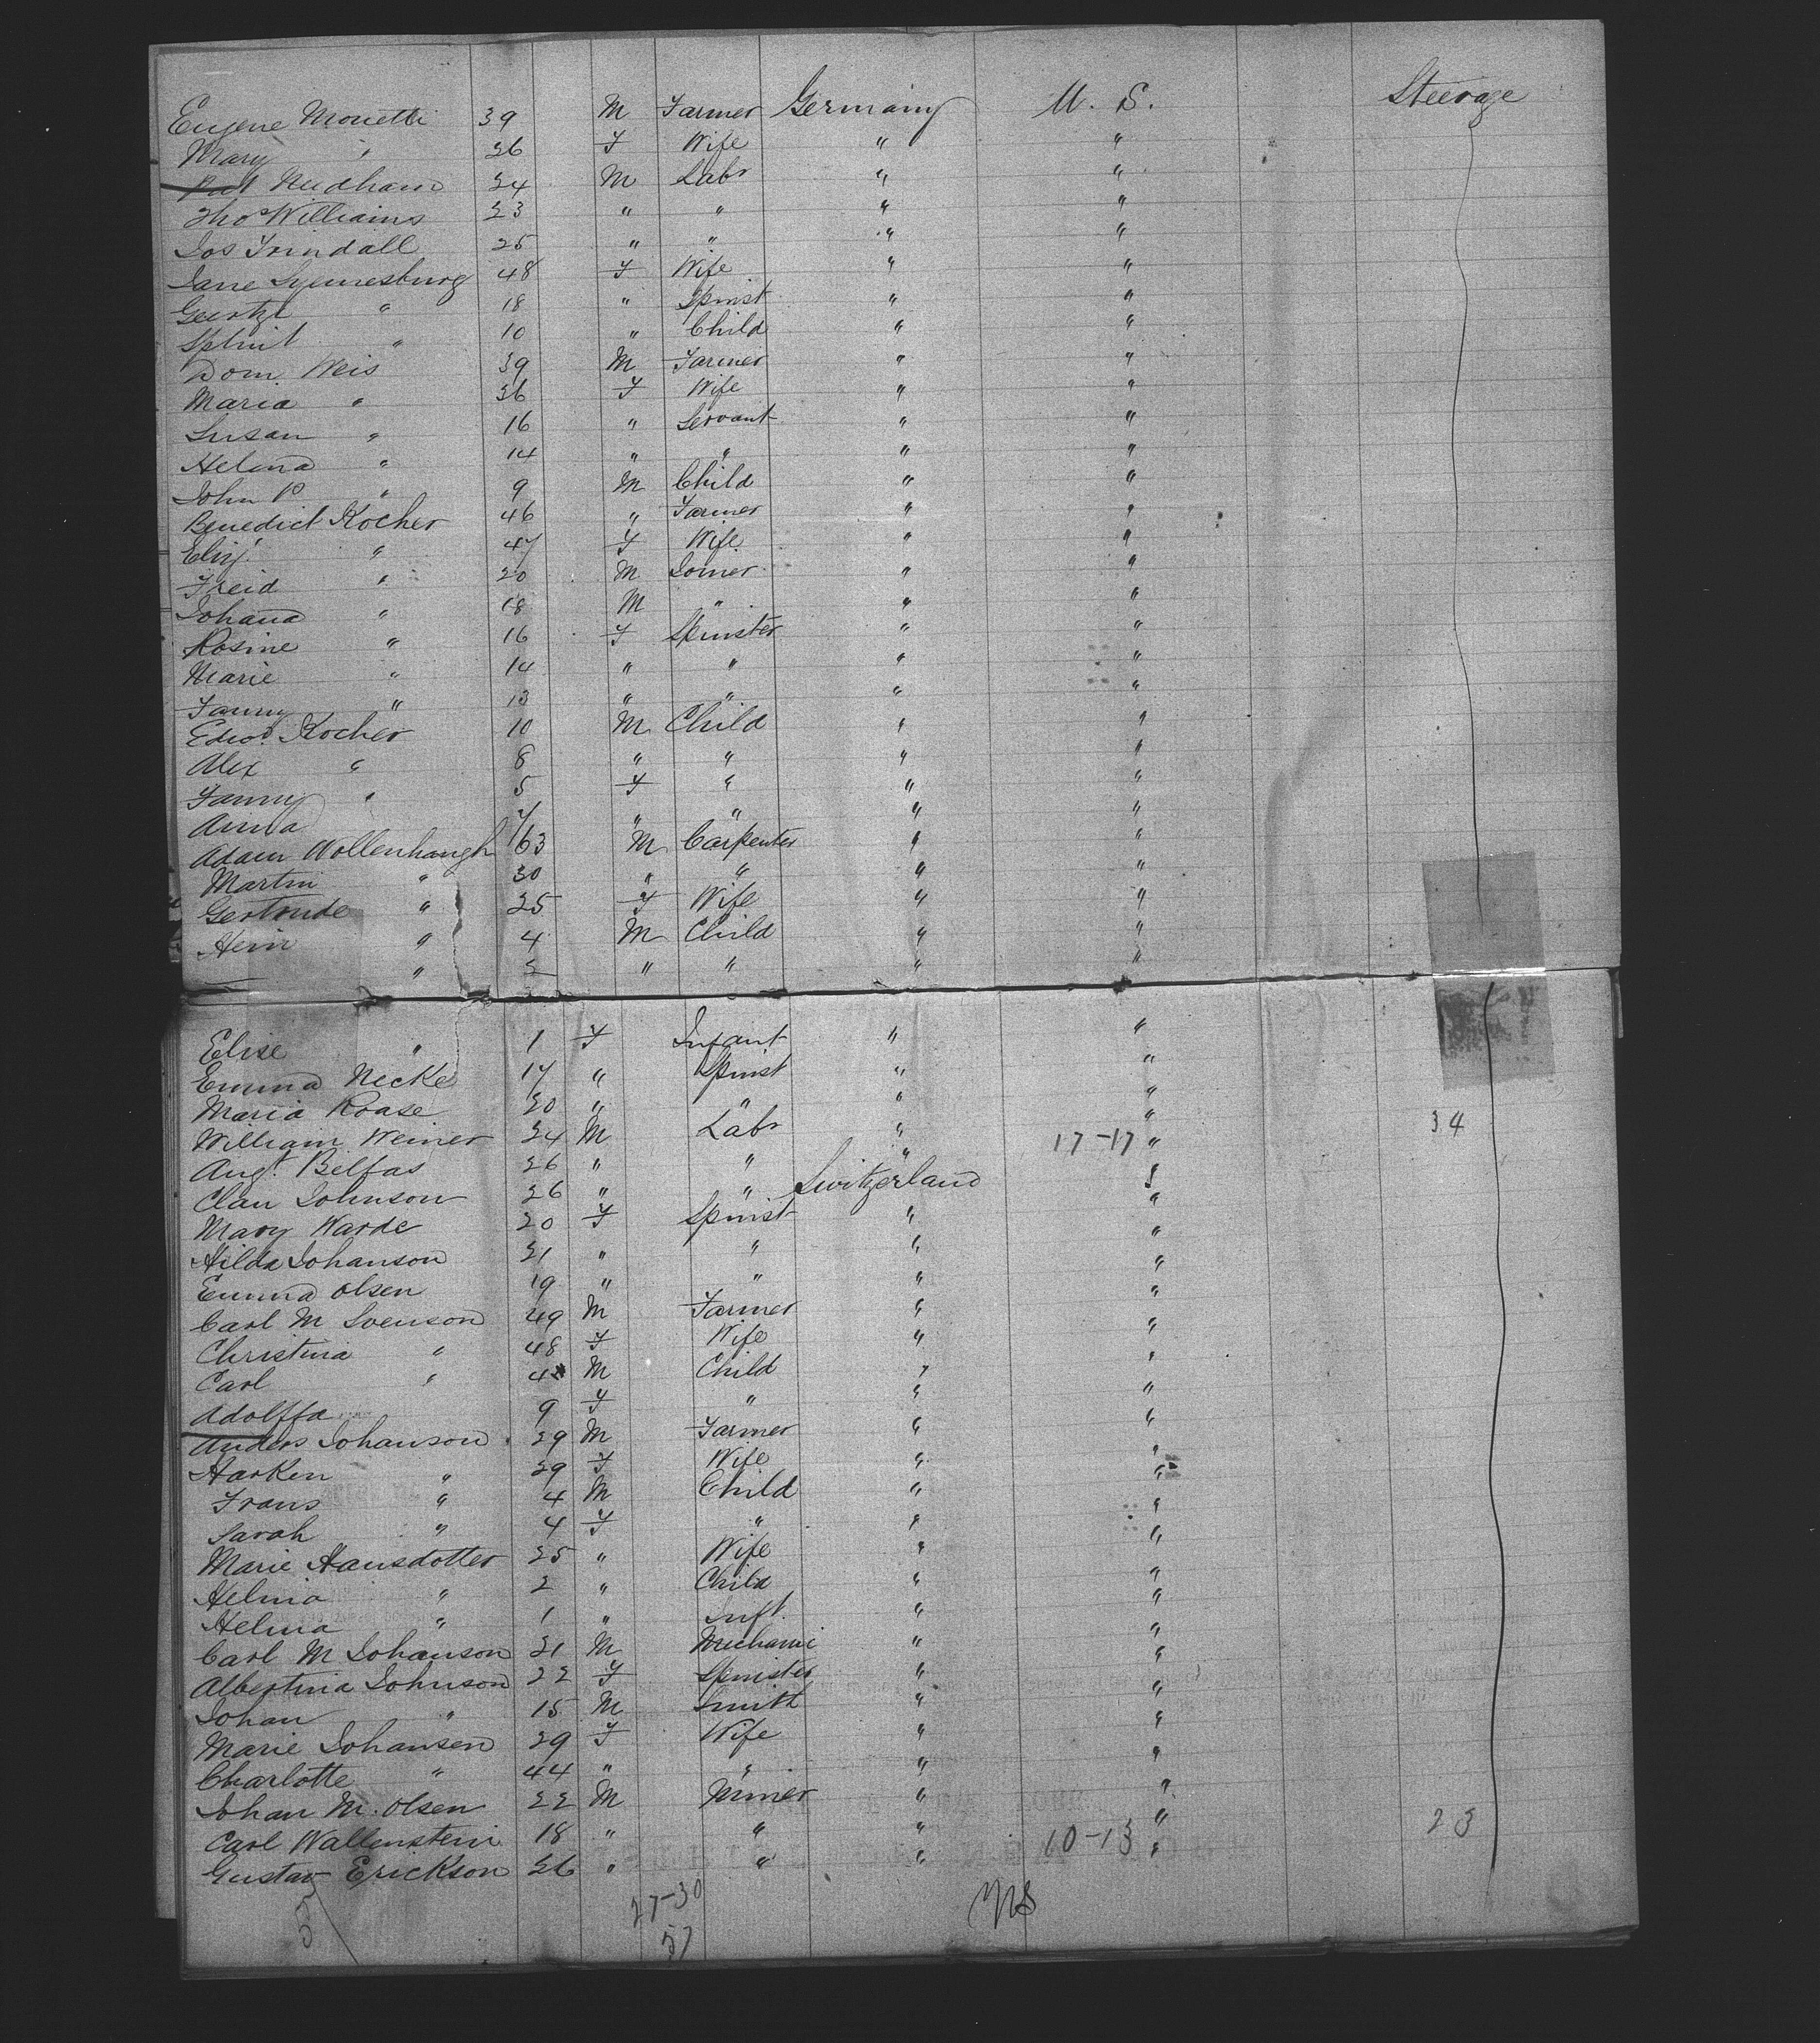 Eugene Monetti 39 M Farmer Germany U. S. Steerage
Mary " 26 F Wife " "
Pat Needham 24 M Labr " "
Tho Williams 23 " " " "
Jos Trindall 25 " " " "
Jane Lynnesburg 48 F Wife " "
" 18 " Spinst " "
" 10 " Child " "
Dom. Weis 39 M Farmer " "
Maria " 36 F Wife " "
Susan " 16 " Servant " "
Helena " 14 " " " "
John P " 9 M Child " "
Benedict Kocher 46 " Farmer " "
Eliz. " 47 F Wife " "
Freid " 20 M Joiner " "
Johana " 18 M " " "
Rosine " 16 F Spinster " "
Marie " 14 " " " "
Fanny " 13 " " " "
Edwd. Kocher 10 M Child " "
Alex " 8 " " " "
Fanny " 5 F " " "
Anna " " " "
Adam Wollenhaugh 63 M Carpenter " "
Martin " 30 " " " "
Gertrude " 25 F Wife " "
Heinr " 4 M Child " "
" 2 " " " "
Elise " 1 F Infant " "
Emma Necke 17 " Spinst " "
Maria Roase 20 " " " "
William Weiner 24 M Labr " " 34
Augt. Belfas 26 " " " 17-17 "
Clan Johnson 26 " " Switzerland "
Mary Warde 20 F Spinst " "
Hilda Johanson 21 " " " "
Emma Olsen 19 " " " "
Carl M Svenson 49 M Farmer " "
Christina " 48 F Wife " "
Carl " 4 M Child " "
Adolffa 9 F " " "
Anders Johanson 29 M Farmer " "
Harken " 29 F Wife " "
Frans " 4 M Child " "
Sarah " 4 F " " "
Marie Hansdotter 25 " Wife " "
Helma " 2 " Child " "
Helma " 1 " Inft. " "
Carl M Johanson 21 M Mechanic " "
Albertina Johnson 22 F Spinster " "
Johan " 15 M Smith " "
Marie Johansen 29 F Wife " "
Charlotte " 44 " " " "
Johan M. Olsen 22 M Miner " "
Carl Wallenstein 18 " " " " 23
Gustav Erickson 26 " " " 10-13 "
27-30
57